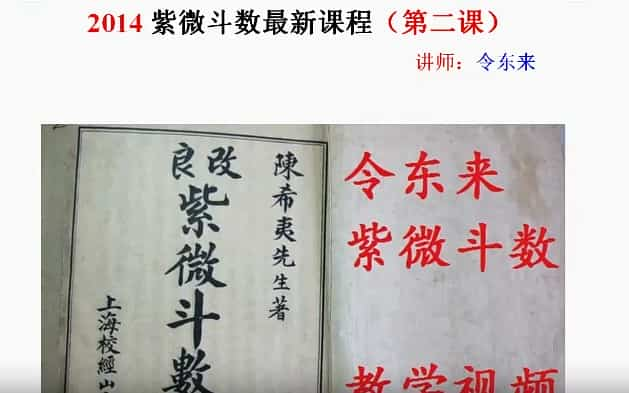 2014 紫微斗数最新课程（第二课）
讲师：令东来
陳希夷先生著
改良
紫微斗數
上海校經山
令东来
紫微斗数
教学视频